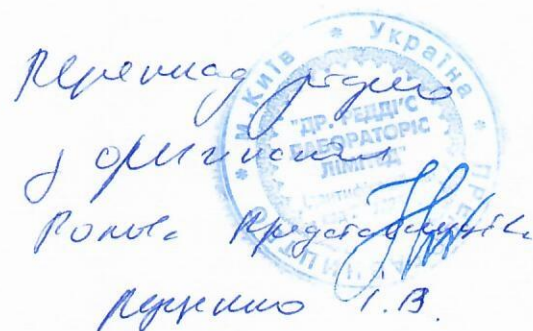 Переклад згідно
з оригіналом
Голова Представництва
І.В.
м. Київ * Україна *
"ДР. РЕДДІ'С
ЛАБОРАТОРІС
ЛІМІТЕД"